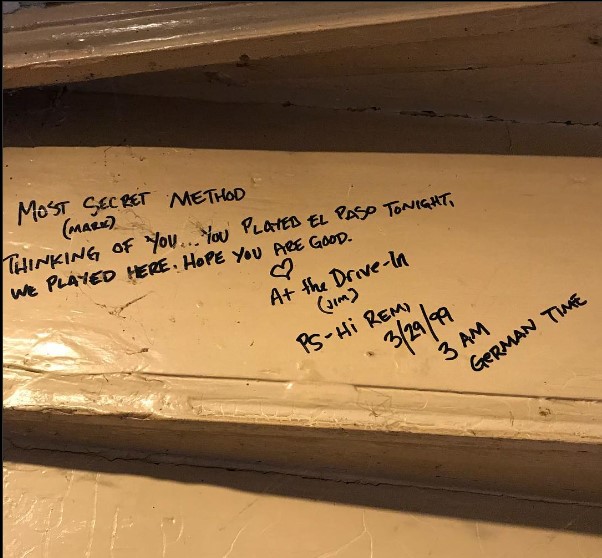 MOST SECRET METHOD
(MARC)
THINKING OF YOU... YOU PLAYED EL PASO TONIGHT,
WE PLAYED HERE. HOPE YOU ARE GOOD.
♡
At the Drive-In
(JIM)
PS-Hi REMI
3/29/99
3 AM
GERMAN TIME